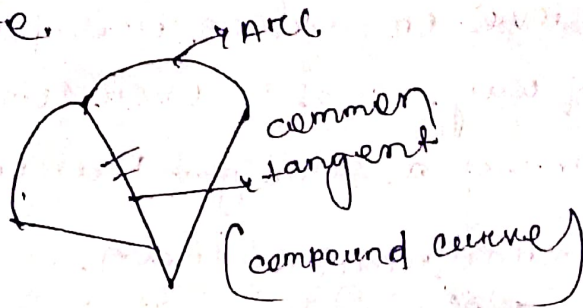 e.
Arc
common
tangent
(compound curve)